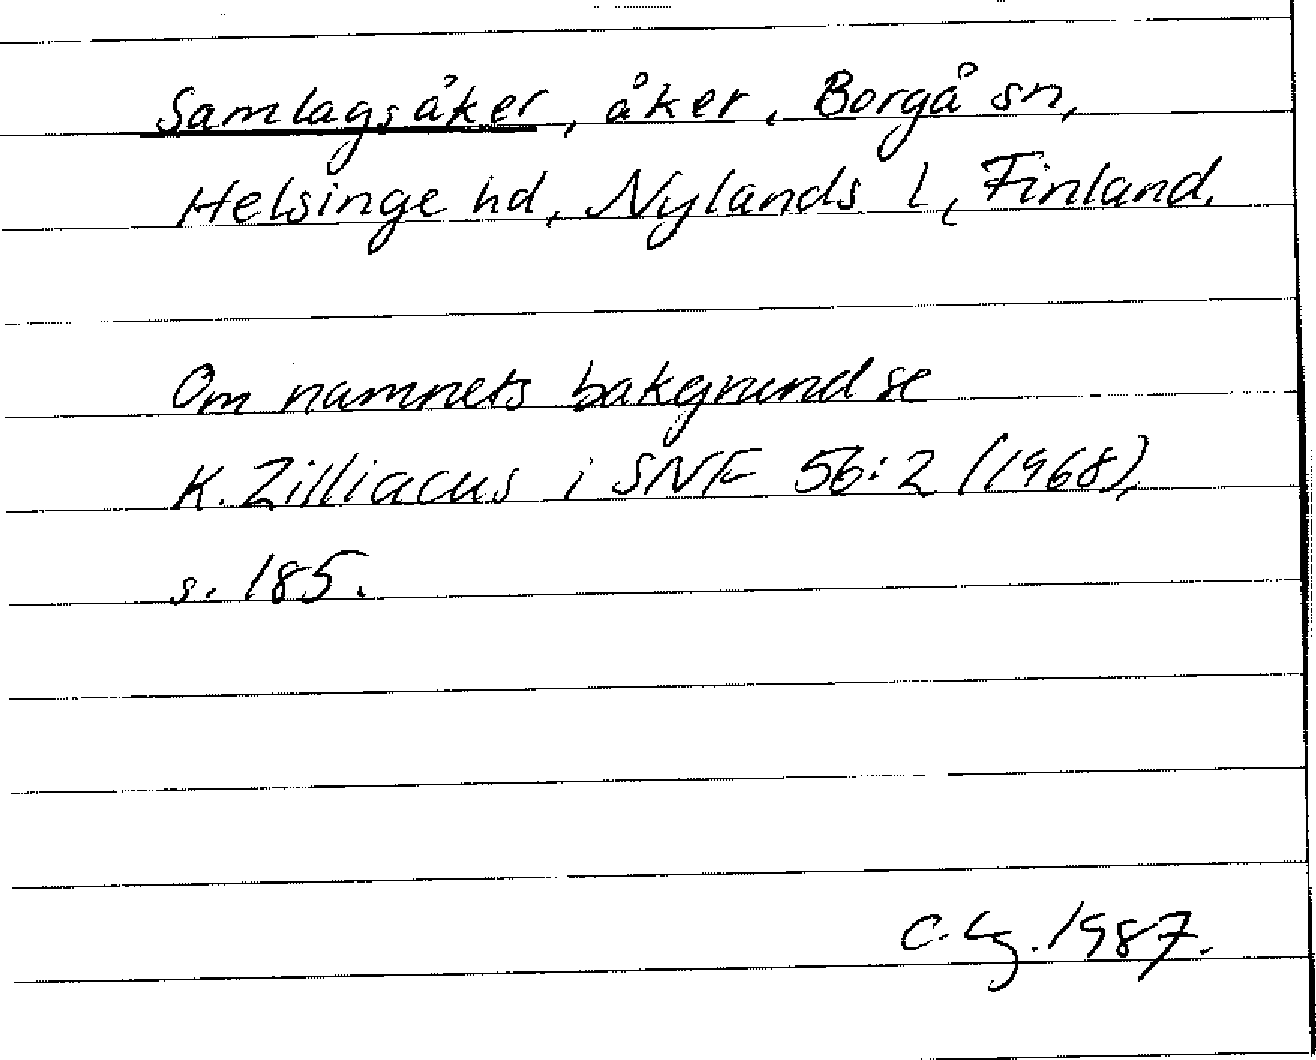 Samlagsåker, åker, Borgå sn,
Helsinge hd, Nylands l, Finland.
Om namnets bakgrund se
K. Zilliacus i SNF 56:2 (1968),
s. 185.
C. Lg. 1987.